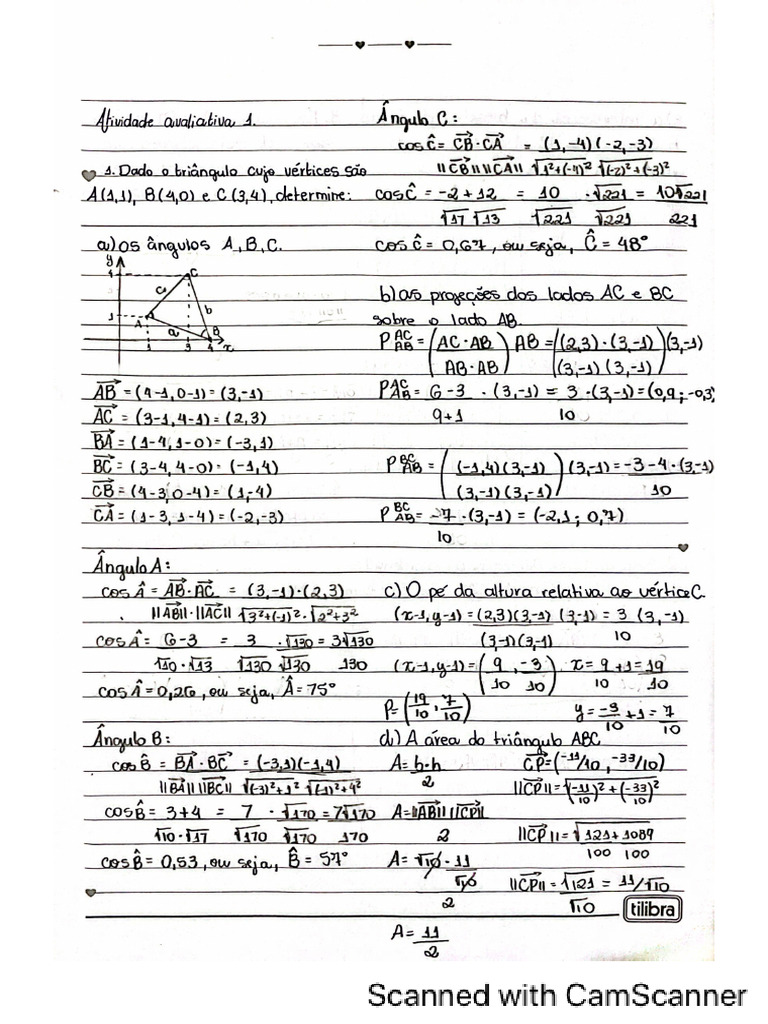 Atividade avaliativa 1.
1. Dado o triângulo cujo vértices são
A(1,1), B(4,0) e C(3,4), determine:
a) os ângulos A, B, C.
y
4
C
c
b
1
A
a
B
1 3 4 x
AB = (4-1, 0-1) = (3,-1)
AC = (3-1, 4-1) = (2,3)
BA = (1-4, 1-0) = (-3,1)
BC = (3-4, 4-0) = (-1,4)
CB = (4-3, 0-4) = (1,-4)
CA = (1-3, 1-4) = (-2,-3)
Ângulo A:
cos Â = AB·AC = (3,-1)·(2,3)
||AB||·||AC|| √3²+(-1)²·√2²+3²
cos Â = 6-3 = 3 ·√130 = 3√130
√10·√13 √130 √130 130
cos Â = 0,26, ou seja, Â = 75°
Ângulo B:
cos B̂ = BA·BC = (-3,1)(-1,4)
||BA|| ||BC|| √(-3)²+1² √(-1)²+4²
cos B̂ = 3+4 = 7 ·√170 = 7√170
√10·√17 √170 √170 170
cos B̂ = 0,53, ou seja, B̂ = 57°
Ângulo C:
cos Ĉ = CB·CA = (1,-4)(-2,-3)
||CB|| ||CA|| √1²+(-4)² √(-2)²+(-3)²
cos Ĉ = -2+12 = 10 ·√221 = 10√221
√17 √13 √221 √221 221
cos Ĉ = 0,67, ou seja, Ĉ = 48°
b) as projeções dos lados AC e BC
sobre o lado AB.
P AC AB = (AC·AB) AB = ((2,3)·(3,-1)) (3,-1)
AB·AB (3,-1)(3,-1)
P AC AB = 6-3 ·(3,-1) = 3 ·(3,-1) = (0,9; -0,3)
9+1 10
P BC AB = ((-1,4)(3,-1)) (3,-1) = -3-4·(3,-1)
(3,-1)(3,-1) 10
P BC AB = -7 ·(3,-1) = (-2,1; 0,7)
10
c) O pé da altura relativa ao vértice C.
(x-1, y-1) = (2,3)(3,-1) (3,-1) = 3 (3,-1)
(3,-1)(3,-1) 10
(x-1, y-1) = (9, -3) x = 9+1 = 19
10 10 10 10
P = (19/10, 7/10) y = -3/10 + 1 = 7/10
d) A área do triângulo ABC
A = b·h CP = (-11/10, -33/10)
2 ||CP|| = √(-11/10)² + (-33/10)²
A = ||AB|| ||CP||
2 ||CP|| = √121+1089
100 100
A = √10·11
√10 ||CP|| = √121 = 11/√10
2 √10
tilibra
A = 11
2
Scanned with CamScanner